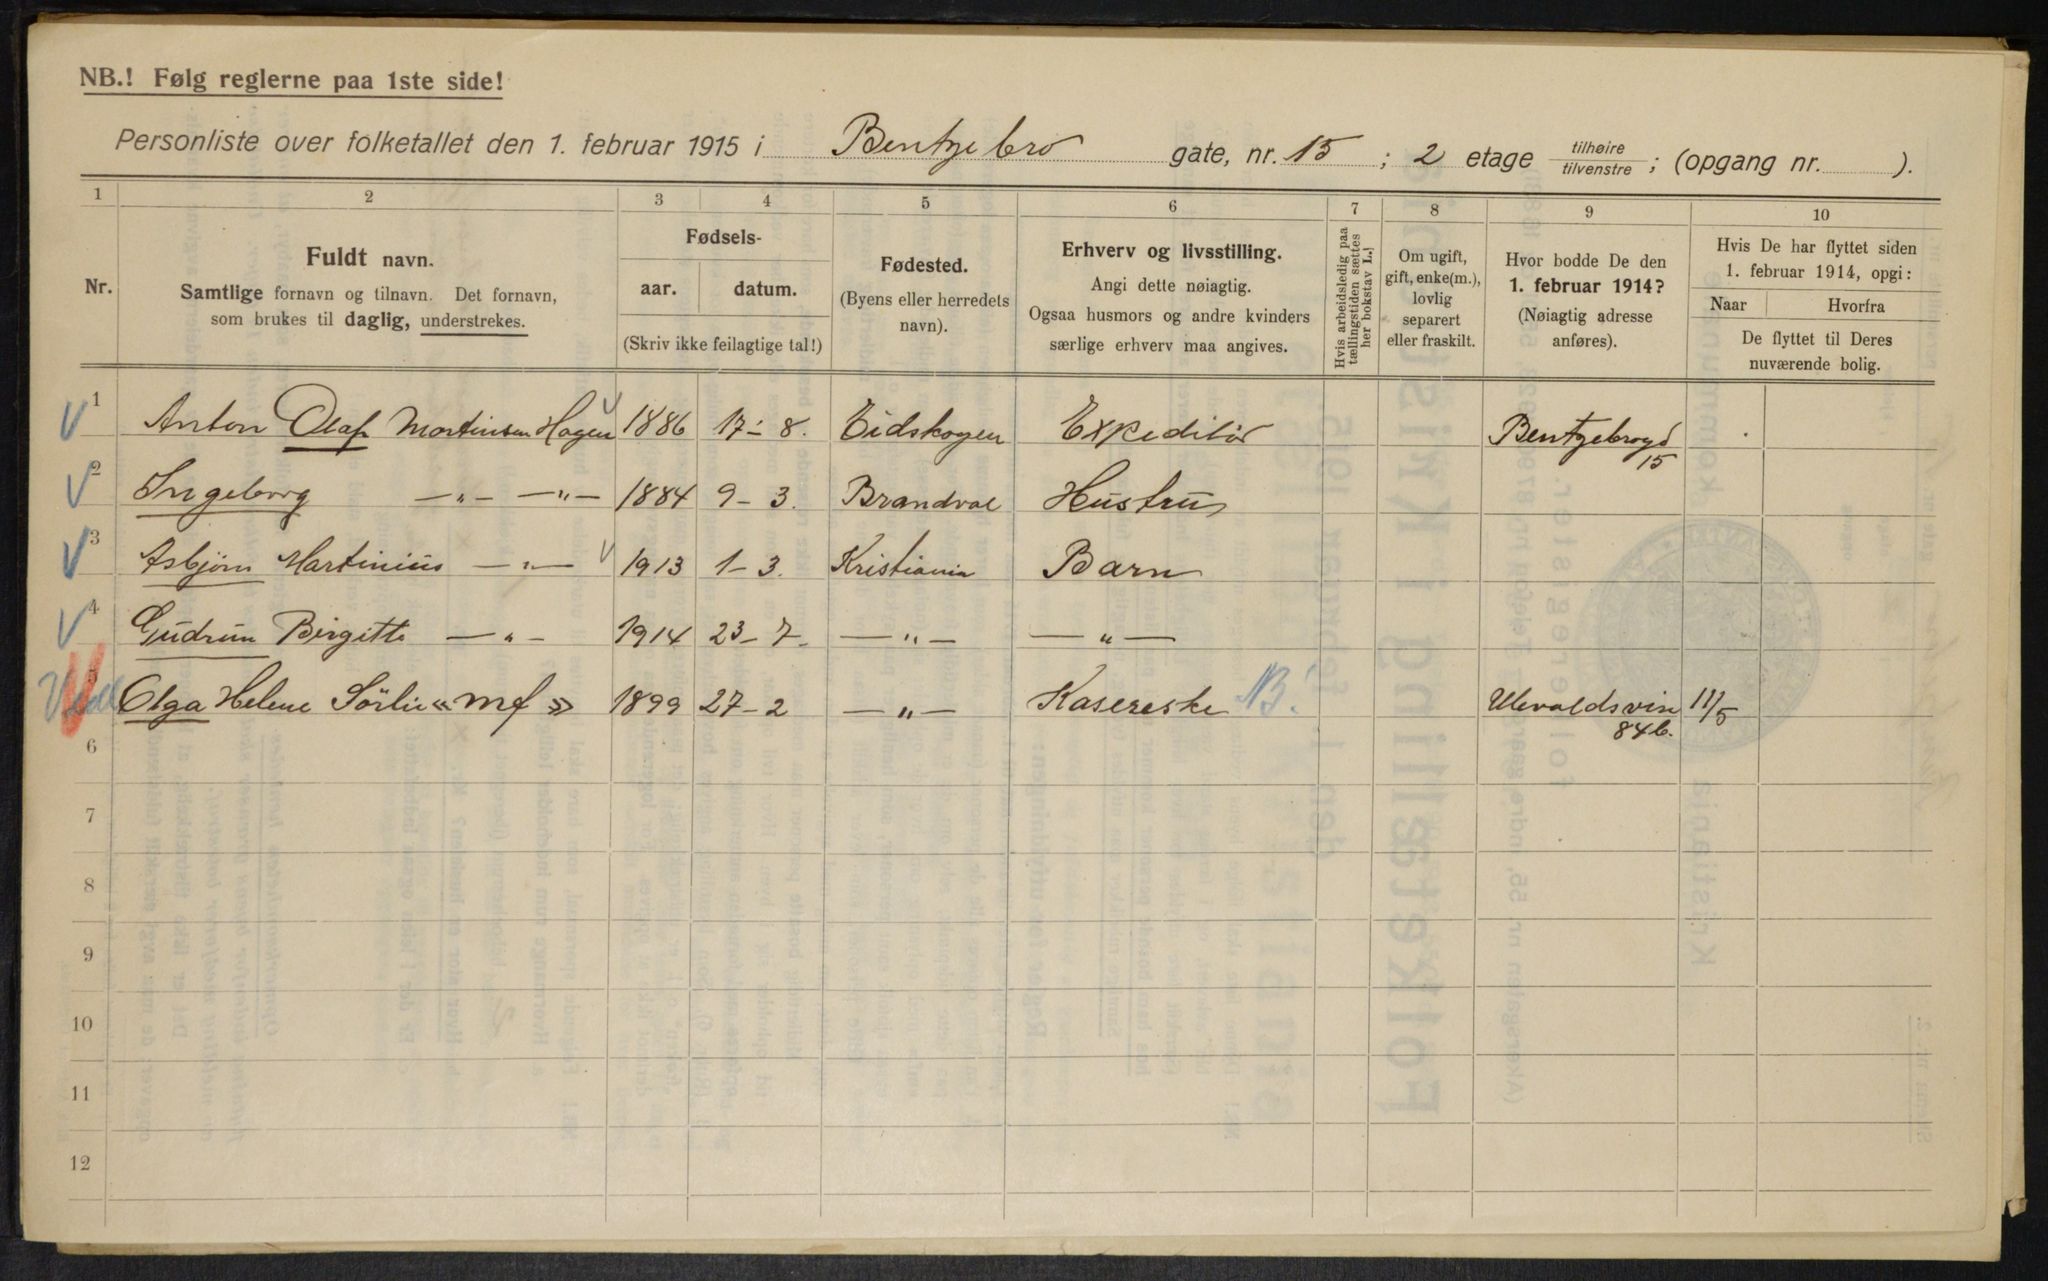 NB.! Følg reglerne paa 1ste side!
Personliste over folketallet den 1. februar 1915 i Bentzebro gate, nr. 15 ; 2 etage tilhøire tilvenstre ; (opgang nr. ).
1 2 3 4 5 6 7 8 9 10
Nr.
Fuldt navn.
Samtlige fornavn og tilnavn. Det fornavn,
som brukes til daglig, understrekes.
Fødsels-
aar. datum.
(Skriv ikke feilagtige tal!)
Fødested.
(Byens eller herredets
navn).
Erhverv og livsstilling.
Angi dette nøiagtig.
Ogsaa husmors og andre kvinders
særlige erhverv maa angives.
Hvis arbeidsledig paa
tællingstiden sættes
her bokstav L.)
Om ugift,
gift, enke(m.),
lovlig
separert
eller fraskilt.
Hvor bodde De den
1. februar 1914?
(Nøiagtig adresse
anføres).
Hvis De har flyttet siden
1. februar 1914, opgi:
Naar Hvorfra
De flyttet til Deres
nuværende bolig.
1 Anton Olaf Martinsen Hagen 1886 17-8. Eidskogen Expeditør Bentzebrogd
15
2 Ingeborg —„— —„— 1884 9-3. Brandval Hustru
3 Asbjørn Martinius —„— 1913 1-3. Kristiania Barn
4 Gudrun Birgitte —„— 1914 23-7- —„— —„—
5 Olga Helene Sørlie « mf » 1899 27-2 —„— Kasereske B! Ulevaldsvin 11/5
84b.
6
7
8
9
10
11
12